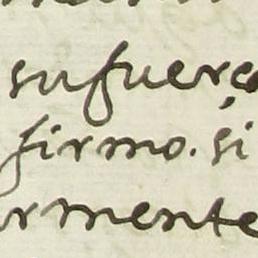 su fuerça
firmo. si
rmente